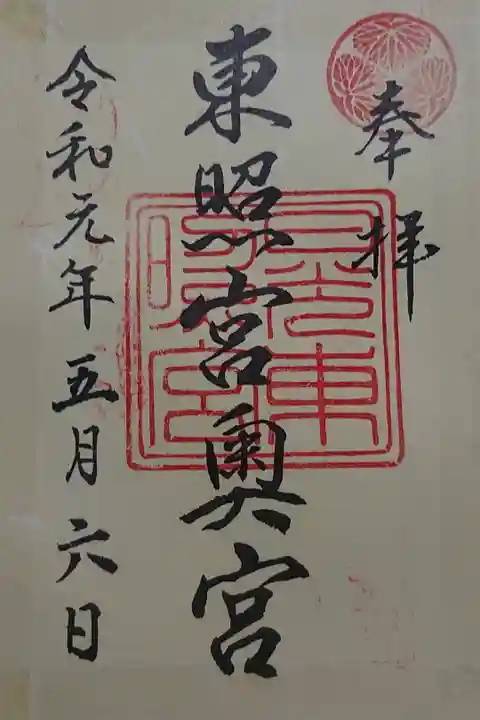 奉拝
東照宮奥宮
日光東照宮
令和元年五月六日